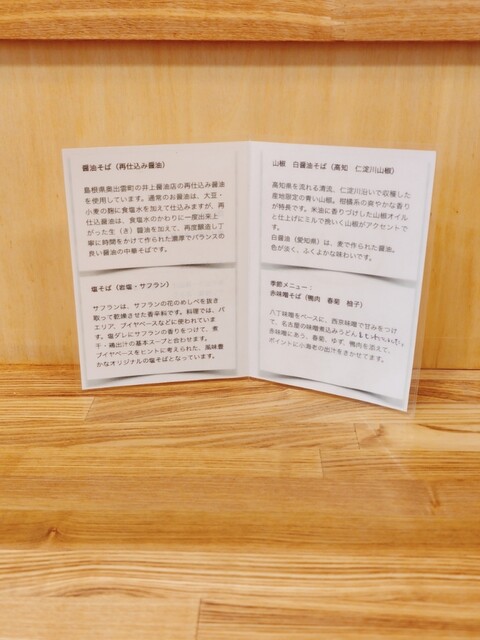 醤油そば（再仕込み醤油）
島根県奥出雲町の井上醤油店の再仕込み醤油
を使用しています。通常のお醤油は、大豆・
小麦の麹に食塩水を加えて仕込みますが、再
仕込醤油は、食塩水のかわりに一度出来上
がった生（き）醤油を加えて、再度醸造し丁
寧に時間をかけて作られた濃厚でバランスの
良い醤油の中華そばです。
塩そば（岩塩・サフラン）
サフランは、サフランの花のめしべを抜き
取って乾燥させた香辛料です。料理では、パ
エリア、ブイヤベースなどに使われていま
す。塩ダレにサフランの香りをつけて、煮
干・鶏出汁の基本スープと合わせます。
ブイヤベースをヒントに考えられた、風味豊
かなオリジナルの塩そばとなっています。
山椒　白醤油そば（高知　仁淀川山椒）
高知県を流れる清流、仁淀川沿いで収穫した
産地限定の青い山椒。柑橘系の爽やかな香り
が特長です。米油に香りづけした山椒オイル
と仕上げにミルで挽いく山椒がアクセントで
す。
白醤油（愛知県）は、麦で作られた醤油。
色が淡く、ふくよかな味わいです。
季節メニュー：
赤味噌そば（鴨肉　春菊　柚子）
八丁味噌をベースに、西京味噌で甘みをつけ
て、名古屋の味噌煮込みうどん
赤味噌にあう、春菊、ゆず、鴨肉を添えて、
ポイントに小海老の出汁をきかせてます。